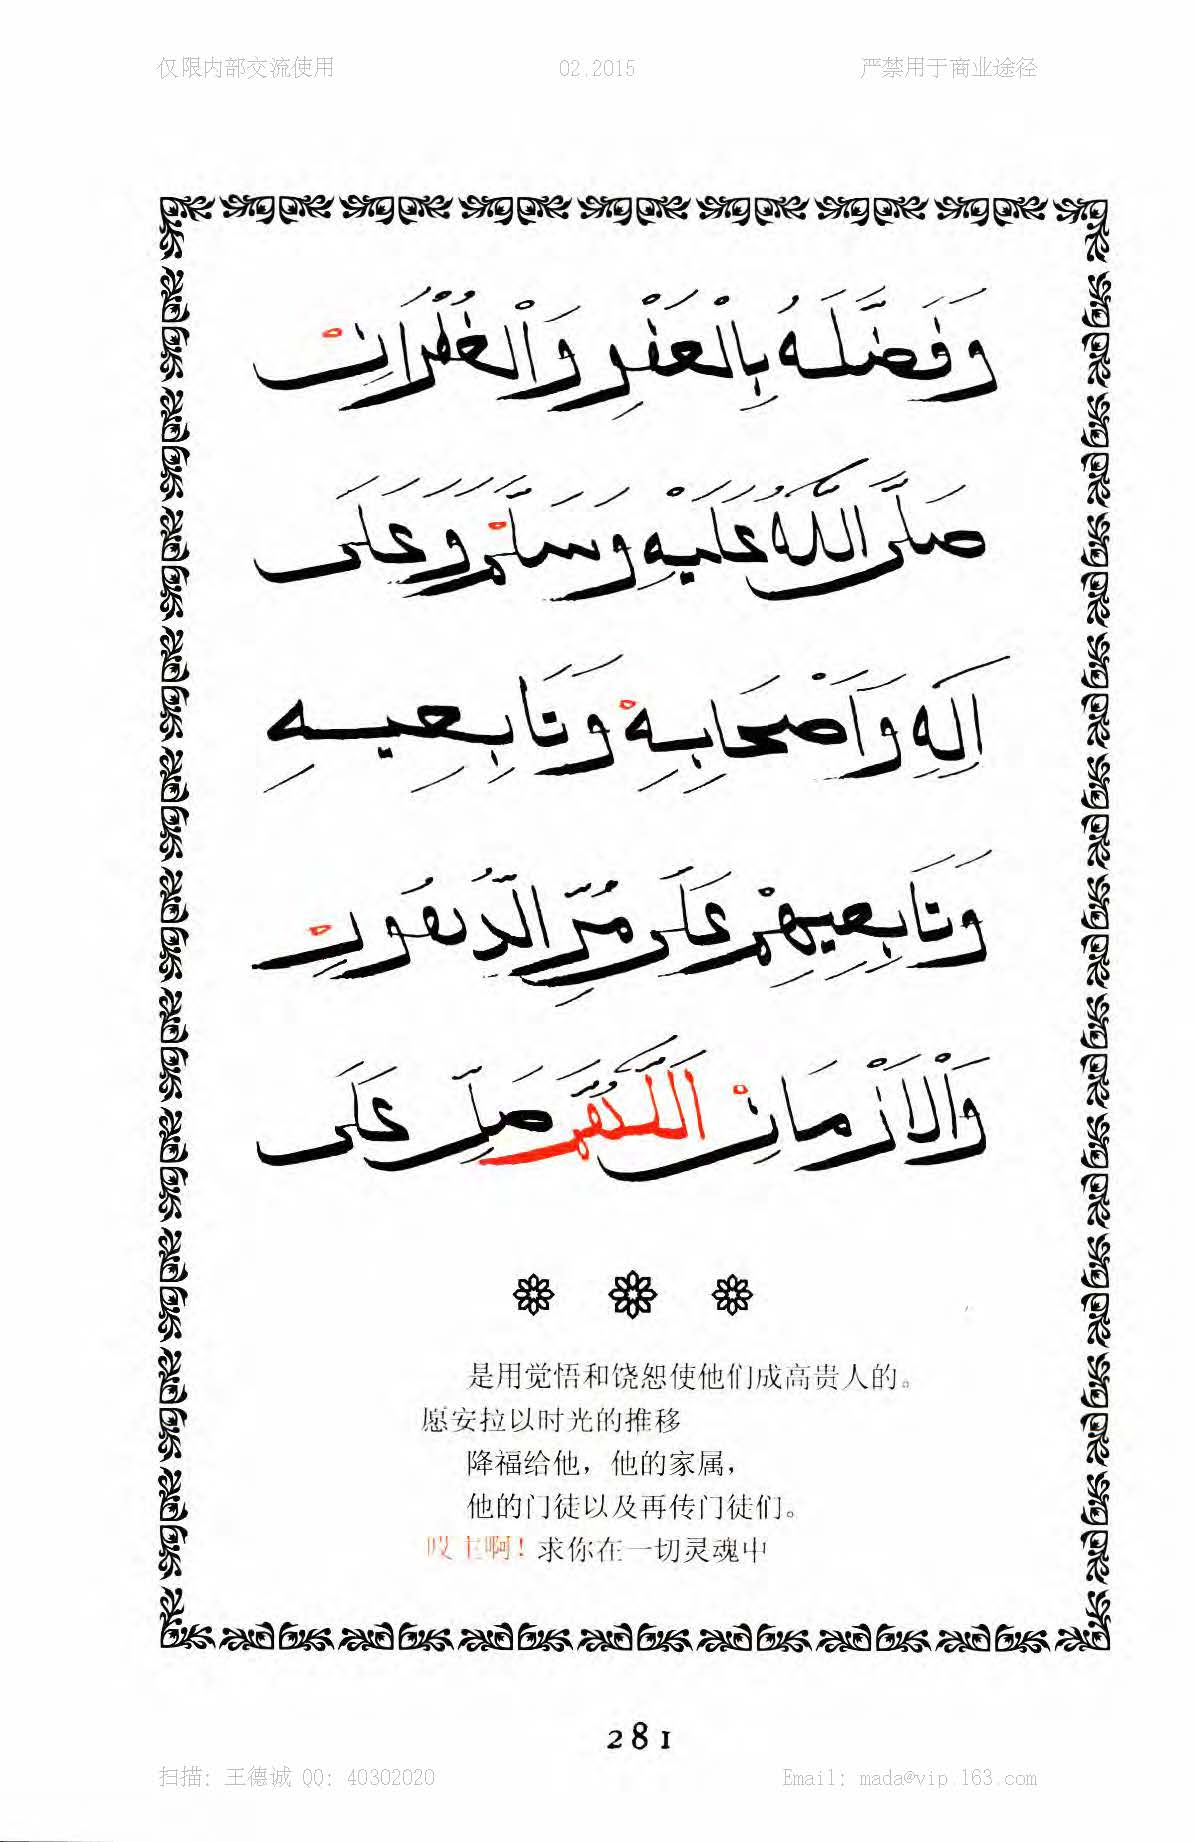 仅限内部交流使用 02.2015 严禁用于商业途径
وَفَضَّلَهُ بِالْعَفْوِ وَالْغُفْرَانِ
صَلَّى اللهُ عَلَيْهِ وَسَلَّمَ وَعَلَى
اَلِهِ وَاَصْحَابِهِ وَتَابِعِيهِ
وَتَابِعِيهِمْ عَلَى مُرِّ الدُّهُورِ
وَالْاَزْمَانِ اَللّٰهُمَّ صَلِّ عَلَى
是用觉悟和饶恕使他们成高贵人的。
愿安拉以时光的推移
降福给他，他的家属，
他的门徒以及再传门徒们。
哎主啊！求你在一切灵魂中
281
扫描: 王德诚 QQ: 40302020 Email: mada@vip.163.com